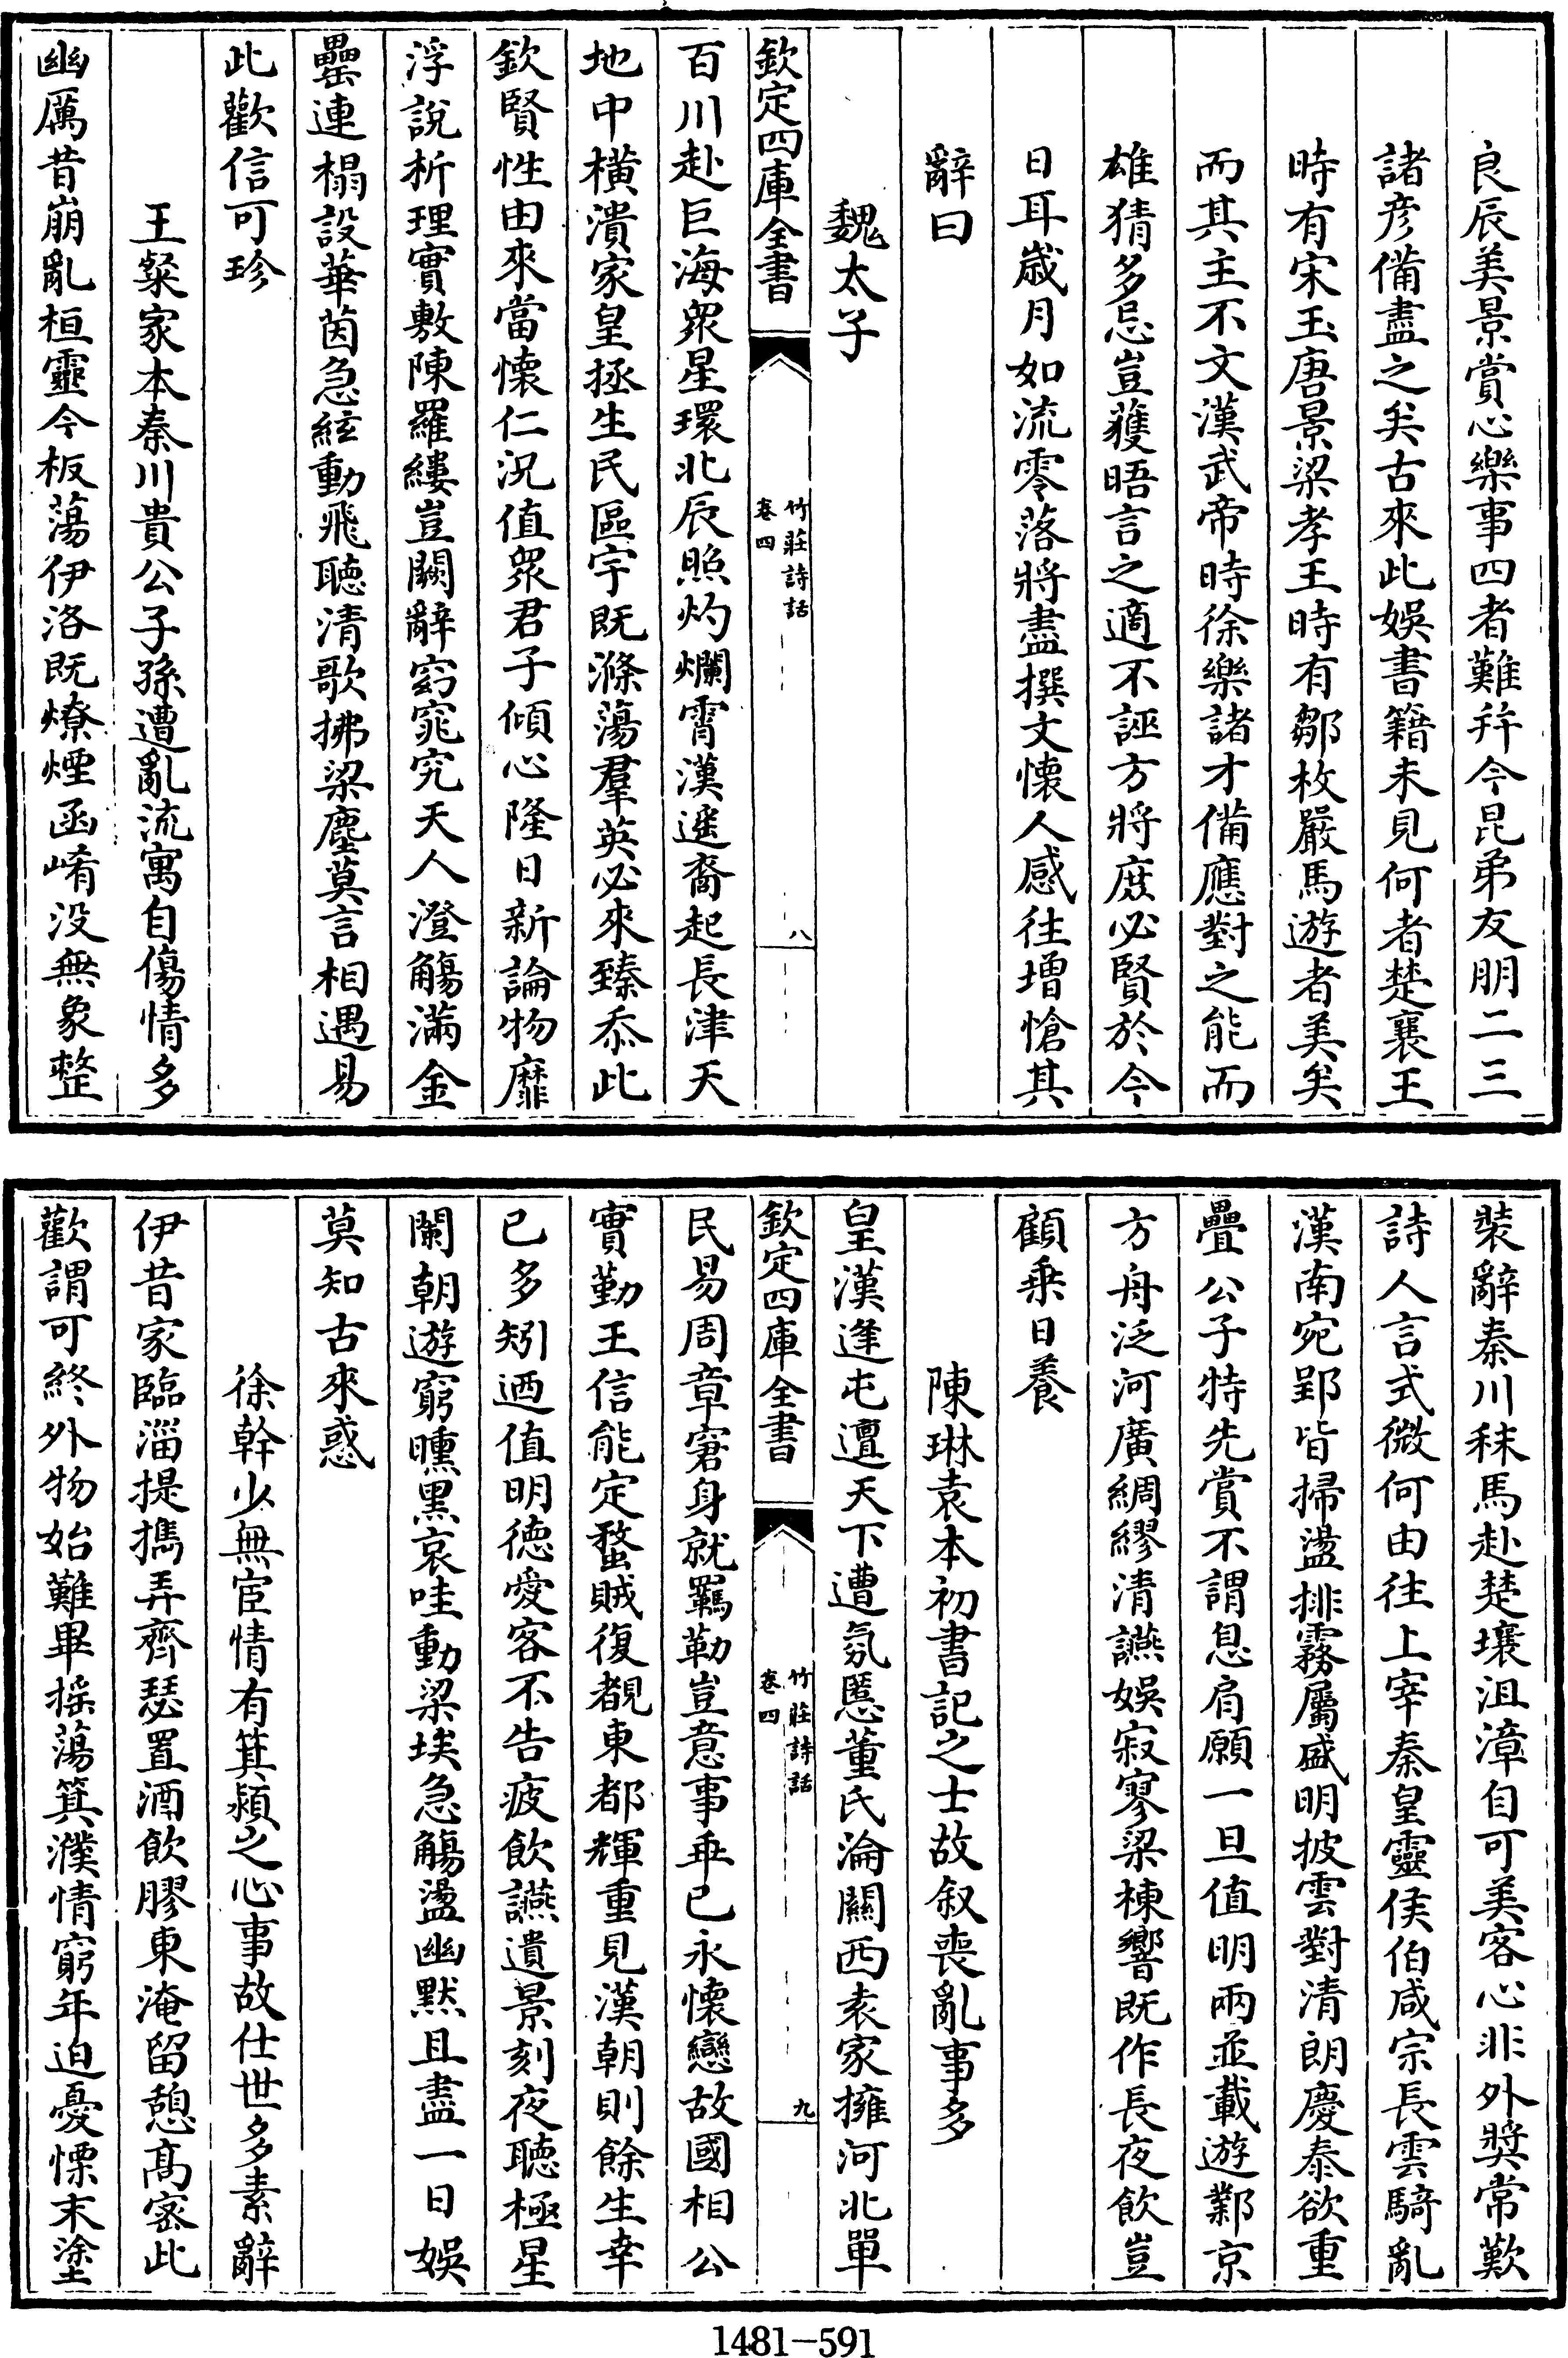 良辰美景賞心樂事四者難并今昆弟友朋二三
諸彦備盡之矣古來此娛書籍未見何者楚襄王
時有宋玉唐景梁孝王時有鄒枚嚴馬遊者美矣
而其主不文漢武帝時徐樂諸才備應對之能而
雄猜多忌豈獲晤言之適不誣方將庶必賢於今
日耳歲月如流零落將盡撰文懐人感往增愴其
辭曰
魏太子
欽定四庫全書
竹莊詩話
卷四
八
百川赴巨海衆星環北辰照灼爛霄漢遥裔起長津天
地中橫潰家皇拯生民區宇既滌蕩羣英必來臻忝此
欽賢性由來當懐仁況值衆君子傾心隆日新論物靡
浮說析理實敷陳羅縷豈闕辭窈窕究天人澄觴滿金
罍連榻設華茵急絃動飛聽清歌拂梁塵莫言相遇易
此歡信可珍
王粲家本秦川貴公子孫遭亂流寓自傷情多
幽厲昔崩亂桓靈今板蕩伊洛既燎煙函崤没無象整
裝辭秦川秣馬赴楚壤沮漳自可美客心非外奬常歎
詩人言式微何由往上宰奉皇靈侯伯咸宗長雲騎亂
漢南宛郢皆掃盪排霧屬盛明披雲對清朗慶泰欲重
疊公子特先賞不謂息肩願一旦值明兩並載遊鄴京
方舟泛河廣綢繆清讌娛寂寥梁棟響既作長夜飲豈
顧乗日養
陳琳袁本初書記之士故叙喪亂事多
皇漢逢屯邅天下遭氛慝董氏淪關西袁家擁河北單
欽定四庫全書
竹莊詩話
卷四
九
民易周章窘身就羈勒豈意事乖已永懐戀故國相公
實勤王信能定蝥賊復覩東都輝重見漢朝則餘生幸
已多矧迺值明德愛客不告疲飲讌遺景刻夜聽極星
闌朝遊窮曛黑哀哇動梁埃急觴盪幽默且盡一日娛
莫知古來惑
徐幹少無宦情有箕潁之心事故仕世多素辭
伊昔家臨淄提擕弄齊瑟置酒飲膠東淹留憩髙宻此
歡謂可終外物始難畢揺蕩箕濮情窮年迫憂慄末塗
1481-591